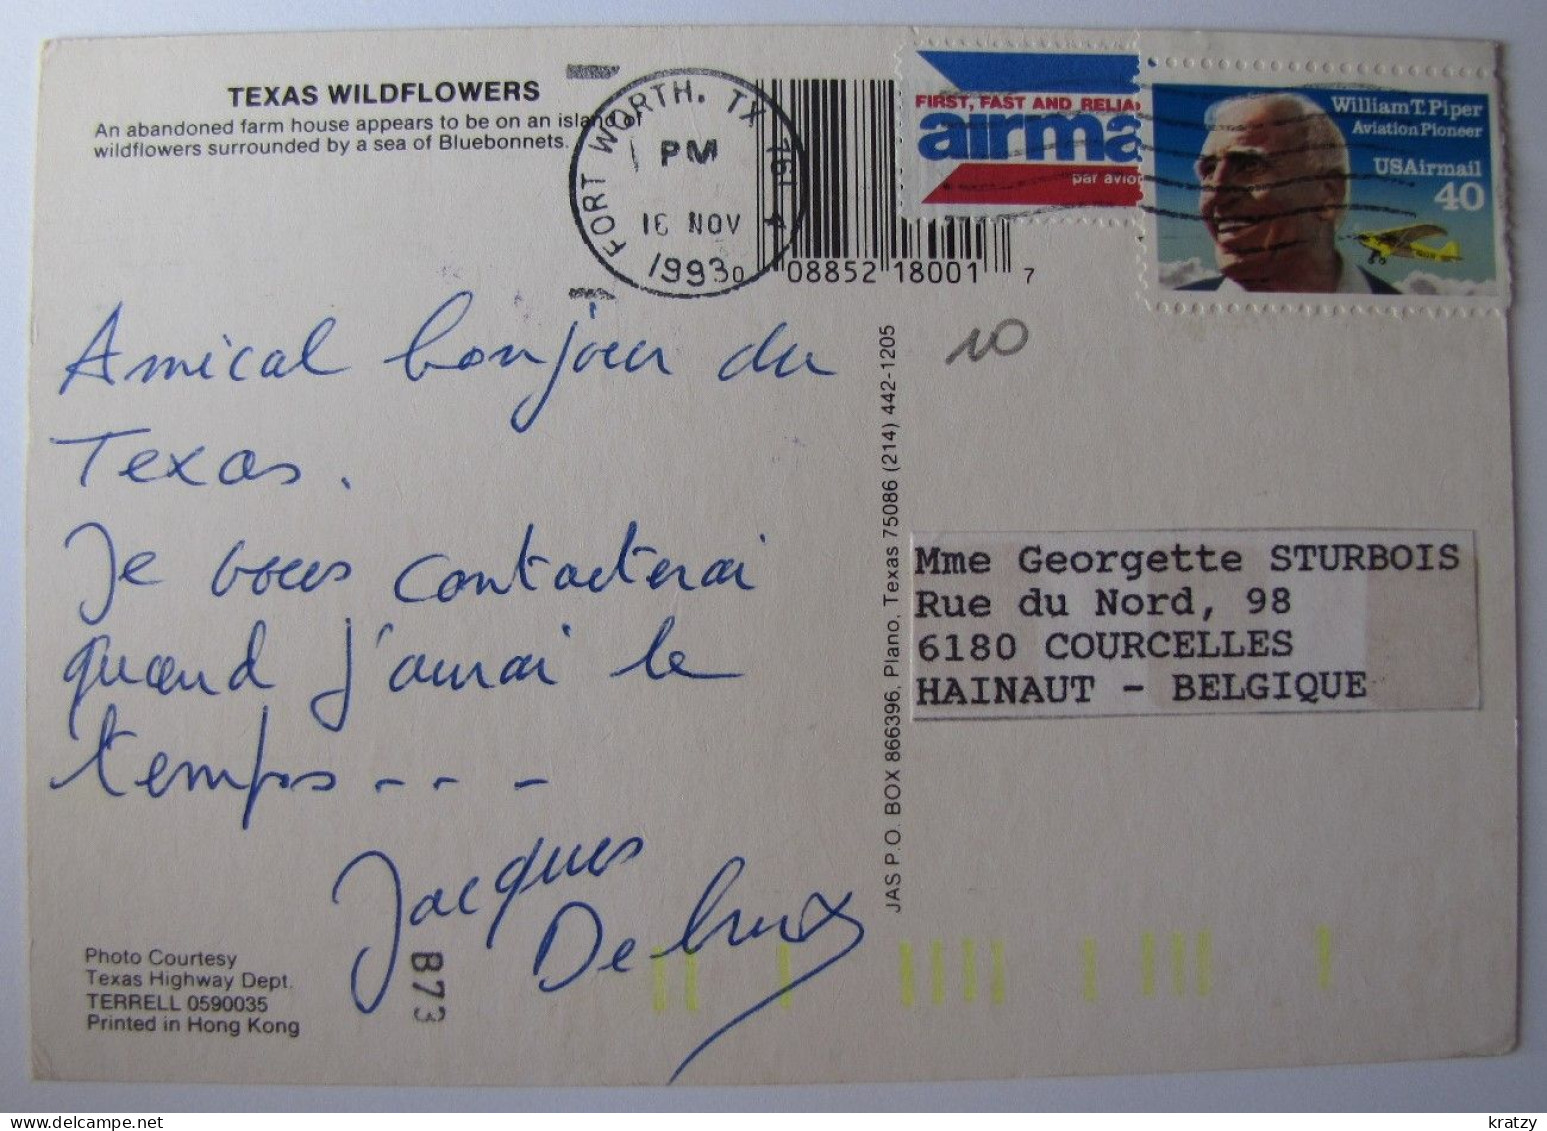 TEXAS WILDFLOWERS
An abandoned farm house appears to be on an island of
wildflowers surrounded by a sea of Bluebonnets.
FORT WORTH, TX 761
PM
16 NOV
1993
0 08852 18001 7
FIRST, FAST AND RELIA
airma
par avio
William T. Piper
Aviation Pioneer
USAirmail
40
10
Amical bonjour du
Texas.
Je vous contacterai
quand j'aurai le
temps - - -
Jacques
JAS P.O. BOX 866396, Plano, Texas 75086 (214) 442-1205
Mme Georgette STURBOIS
Rue du Nord, 98
6180 COURCELLES
HAINAUT - BELGIQUE
Photo Courtesy
Texas Highway Dept.
TERRELL 0590035
Printed in Hong Kong
B73
kratzy